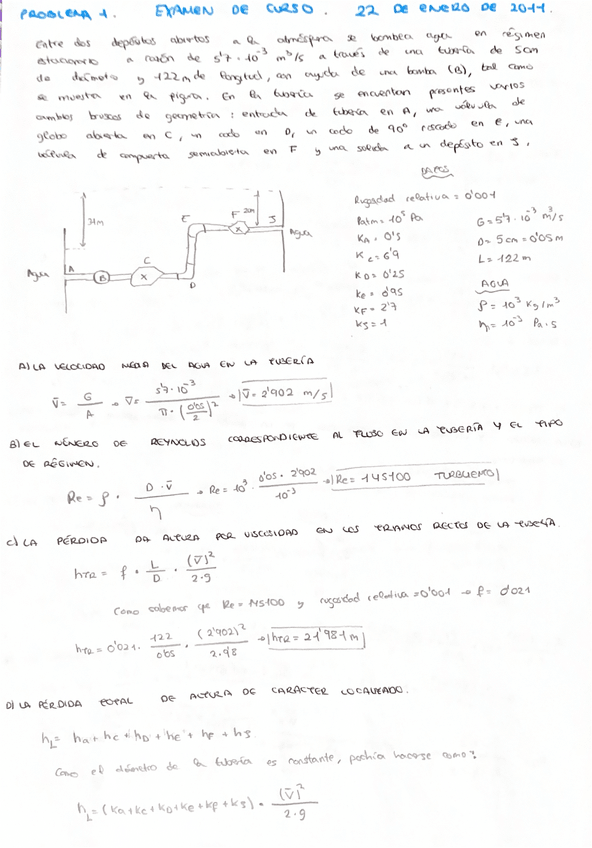 PROBLEMA 1. EXAMEN DE CURSO. 22 DE ENERO DE 2011
Entre dos depósitos abiertos a la atmósfera se bombea agua en régimen
estacionario a razón de 5'7·10⁻³ m³/s a través de una tubería de 5cm
de diámetro y 122m de longitud, con ayuda de una bomba (B), tal como
se muestra en la figura. En la tubería se encuentran presentes varios
cambios bruscos de geometría: entrada de tubería en A, una válvula de
globo abierta en C, un codo en D, un codo de 90° roscado en E, una
válvula de compuerta semiabierta en F y una salida a un depósito en J.
DATOS
Rugosidad relativa = 0'001
Patm = 10⁵ Pa
KA = 0'5
KC = 6'9
KD = 0'25
KE = 0'95
KF = 2'7
KJ = 1
G = 5'7·10⁻³ m³/s
D = 5cm = 0'05m
L = 122 m
AGUA
ρ = 10³ Kg/m³
η = 10⁻³ Pa·s
20m
F
J
E
Agua
C
Agua
A
B
X
X
D
A) LA VELOCIDAD MEDIA DEL AGUA EN LA TUBERÍA
V̄ = G/A → V̄ = 5'7·10⁻³ / π·(0'05/2)² → V̄ = 2'902 m/s
B) EL NÚMERO DE REYNOLDS CORRESPONDIENTE AL FLUJO EN LA TUBERÍA Y EL TIPO
DE RÉGIMEN.
Re = ρ · D·V̄/η → Re = 10³ · 0'05·2'902/10⁻³ → Re = 145100 TURBULENTO
C) LA PÉRDIDA DA ALTURA POR VISCOSIDAD EN LOS TRAMOS RECTOS DE LA TUBERÍA.
hTR = f · L/D · (V̄)²/2·g
Como sabemos que Re = 145100 y rugosidad relativa = 0'001 → f = 0'021
hTR = 0'021 · 122/0'05 · (2'902)²/2·9'8 → hTR = 21'981 m
D) LA PÉRDIDA TOTAL DE ALTURA DE CARÁCTER LOCALIZADO.
hL = hA + hC + hD + hE + hF + hJ
Como el diámetro de la tubería es constante, podría hacerse como:
hL = (KA + KC + KD + KE + KF + KJ) · (V̄)²/2·g